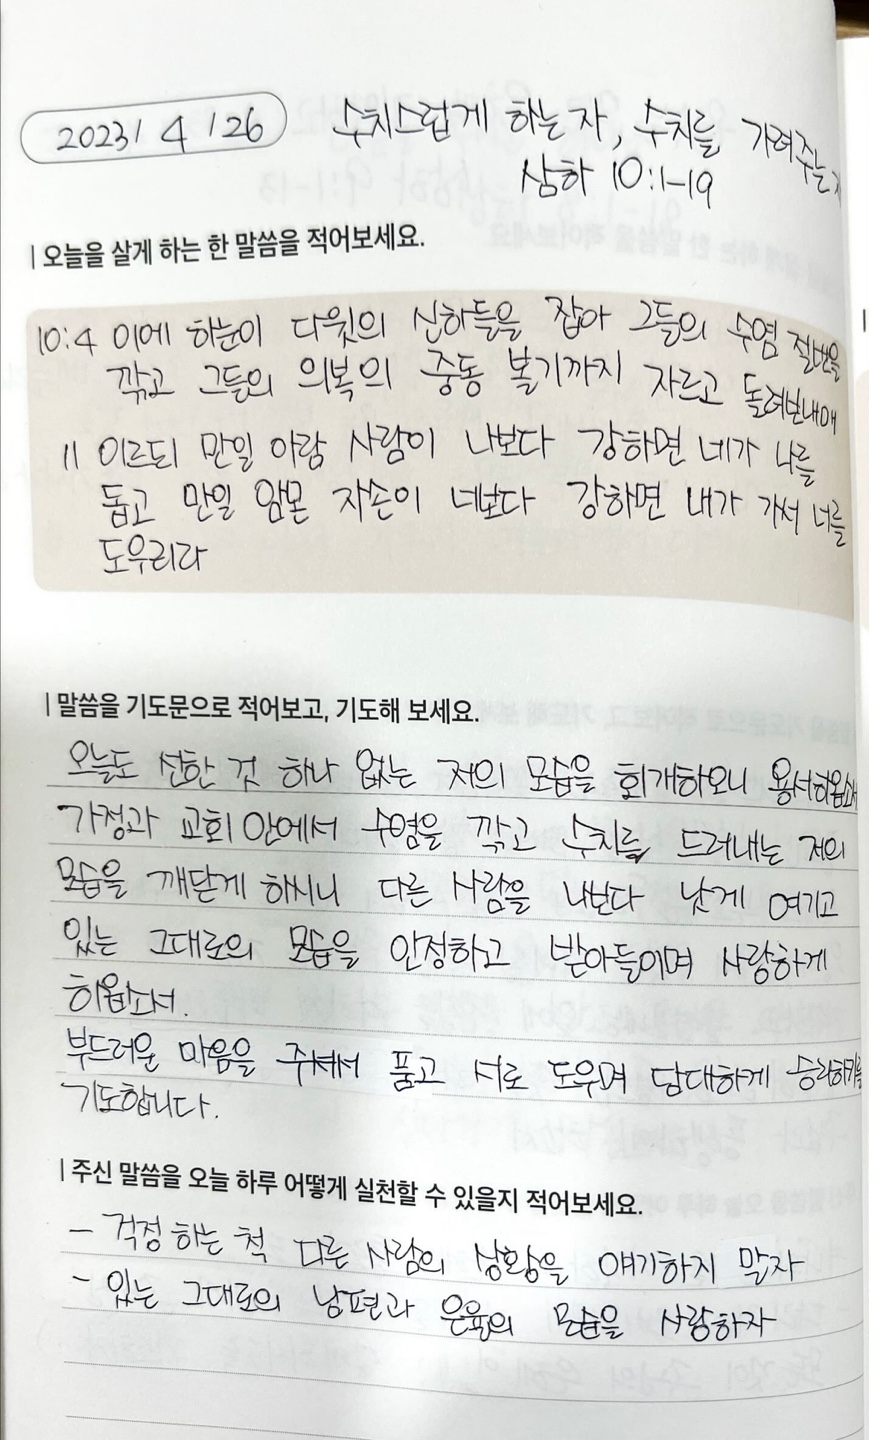 2023 / 4 / 26
수치스럽게 하는 자, 수치를 가려주는
삼하 10:1-19
| 오늘을 살게 하는 한 말씀을 적어보세요.
10:4 이에 하눈이 다윗의 신하들을 잡아 그들의 수염 절반을
깎고 그들의 의복의 중동 볼기까지 자르고 돌려보내매
11 이르되 만일 아람 사람이 나보다 강하면 네가 나를
돕고 만일 암몬 자손이 너보다 강하면 내가 가서 너를
도우리라
| 말씀을 기도문으로 적어보고, 기도해 보세요.
오늘도 선한 것 하나 없는 저의 모습을 회개하오니 용서하옵소서
가정과 교회 안에서 수염을 깎고 수치를 드러내는 저의
모습을 깨닫게 하시니 다른 사람을 나보다 낫게 여기고
있는 그대로의 모습을 인정하고 받아들이며 사랑하게
하옵소서.
부드러운 마음을 주셔서 품고 서로 도우며 담대하게 승리하기를
기도합니다.
| 주신 말씀을 오늘 하루 어떻게 실천할 수 있을지 적어보세요.
- 걱정 하는 척 다른 사람의 상황을 얘기하지 말자
- 있는 그대로의 남편과 은율의 모습을 사랑하자